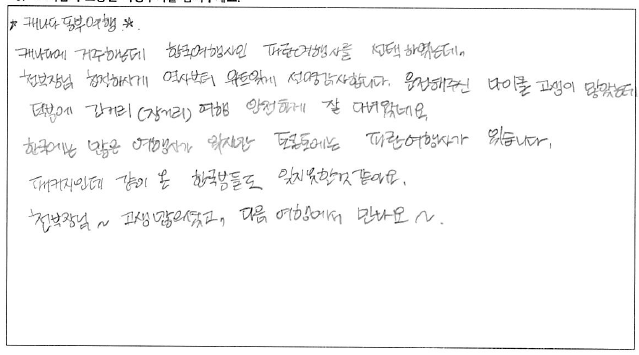 * 캐나다 동부여행 *
캐나다에 거주하는데 한국여행사인 파란여행사를 선택하였는데,
천부장님 친절하시게 역사부터 위트있게 설명감사합니다. 운전해주신 마이클 고생이 많았는데
덕분에 장거리 (장거리) 여행 안전하게 잘 다녀왔네요
한국에는 많은 여행사가 있지만 토론토에는 파란여행사가 있습니다.
패키지인데 같이 온 한국분들도 잊지못할것 같아요.
천부장님 ~ 고생많으셨고, 다음 여행에서 만나요 ~.